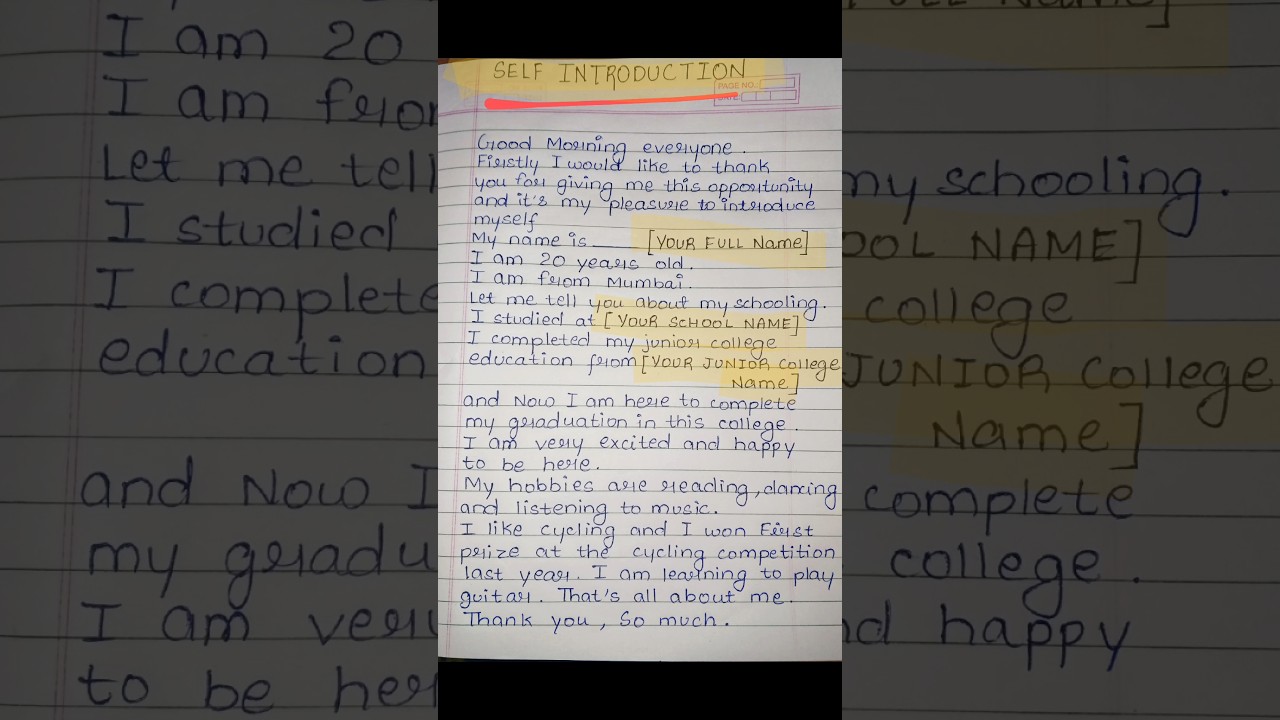 SELF INTRODUCTION
PAGE NO.
DATE
Good Morning everyone.
Firstly I would like to thank
you for giving me this opportunity
and it's my pleasure to introduce
myself
My name is [YOUR FULL Name]
I am 20 years old.
I am from Mumbai.
Let me tell you about my schooling.
I studied at [YOUR SCHOOL NAME]
I completed my junior college
education from [YOUR JUNIOR College
Name]
and Now I am here to complete
my graduation in this college.
I am very excited and happy
to be here.
My hobbies are reading, dancing
and listening to music.
I like cycling and I won First
prize at the cycling competition
last year. I am learning to play
guitar. That's all about me.
Thank you, So much.